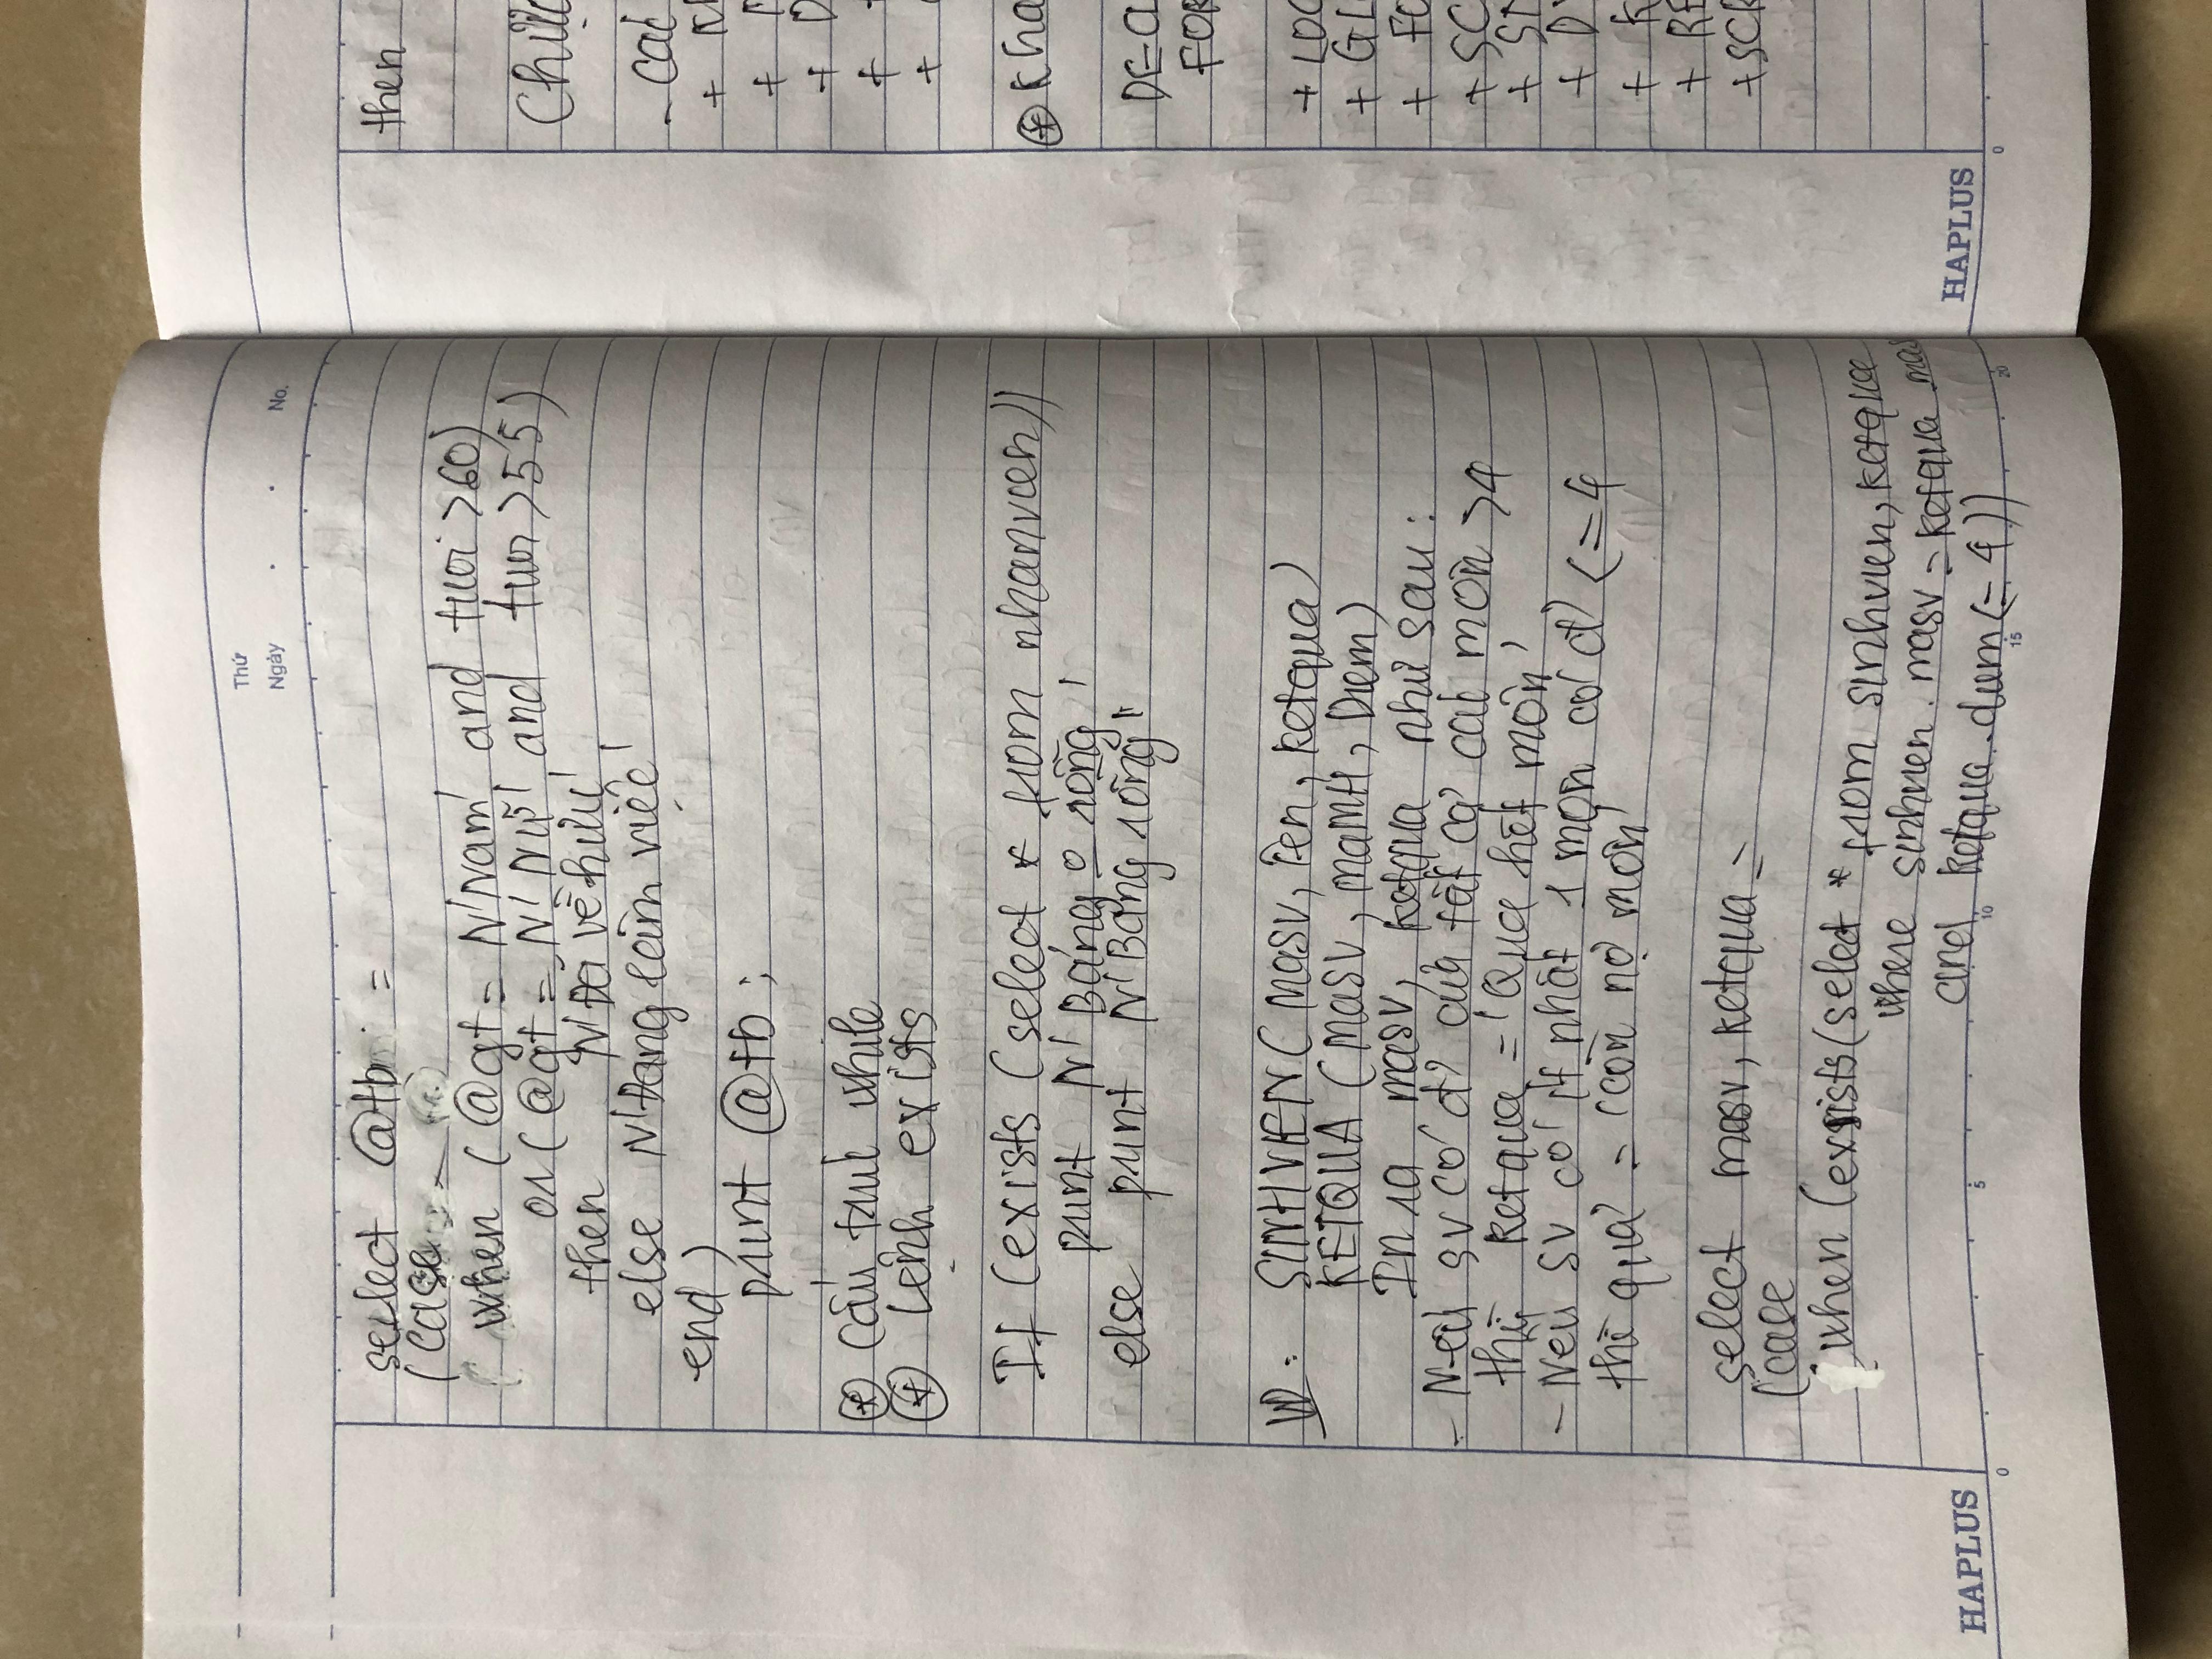 Thứ
Ngày . . No.
select @tb =
(case
when (@gt = N'Nam' and tuoi >60)
or (@gt = N'Nữ' and tuoi >55)
then N'Đã về hưu'
else N'Đang làm việc'
end)
print @tb ;
* Cấu trúc while
* Lệnh exists
If (exists (select * from nhanvien))
print N'Bảng o rỗng'
else print N'Bảng rỗng'
VD: SINHVIEN (MaSV, Ten, Ketqua)
KETQUA (MaSV, MaMH, Diem)
In ra masv, ketqua như sau:
- Nếu SV có đ' của tất cả các môn >4
thì ketqua = 'Qua hết môn'
- Nếu SV có ít nhất 1 môn có đ' <=4
thì quả = 'còn nợ môn'
select masv, ketqua =
(case
when (exists (select * from sinhvien, ketqua
where sinhvien.masv = ketqua mas
and ketqua.diem <= 4))
HAPLUS
0 5 10 15 20
then
Chức
- Các
+ Kh
+ M
+ D
+
+
* Kha
DECL
FOR
+ LOC
+ GL
+ FO
+ SC
+ ST
+ DY
+ K
+ RE
+ SCR
HAPLUS
0